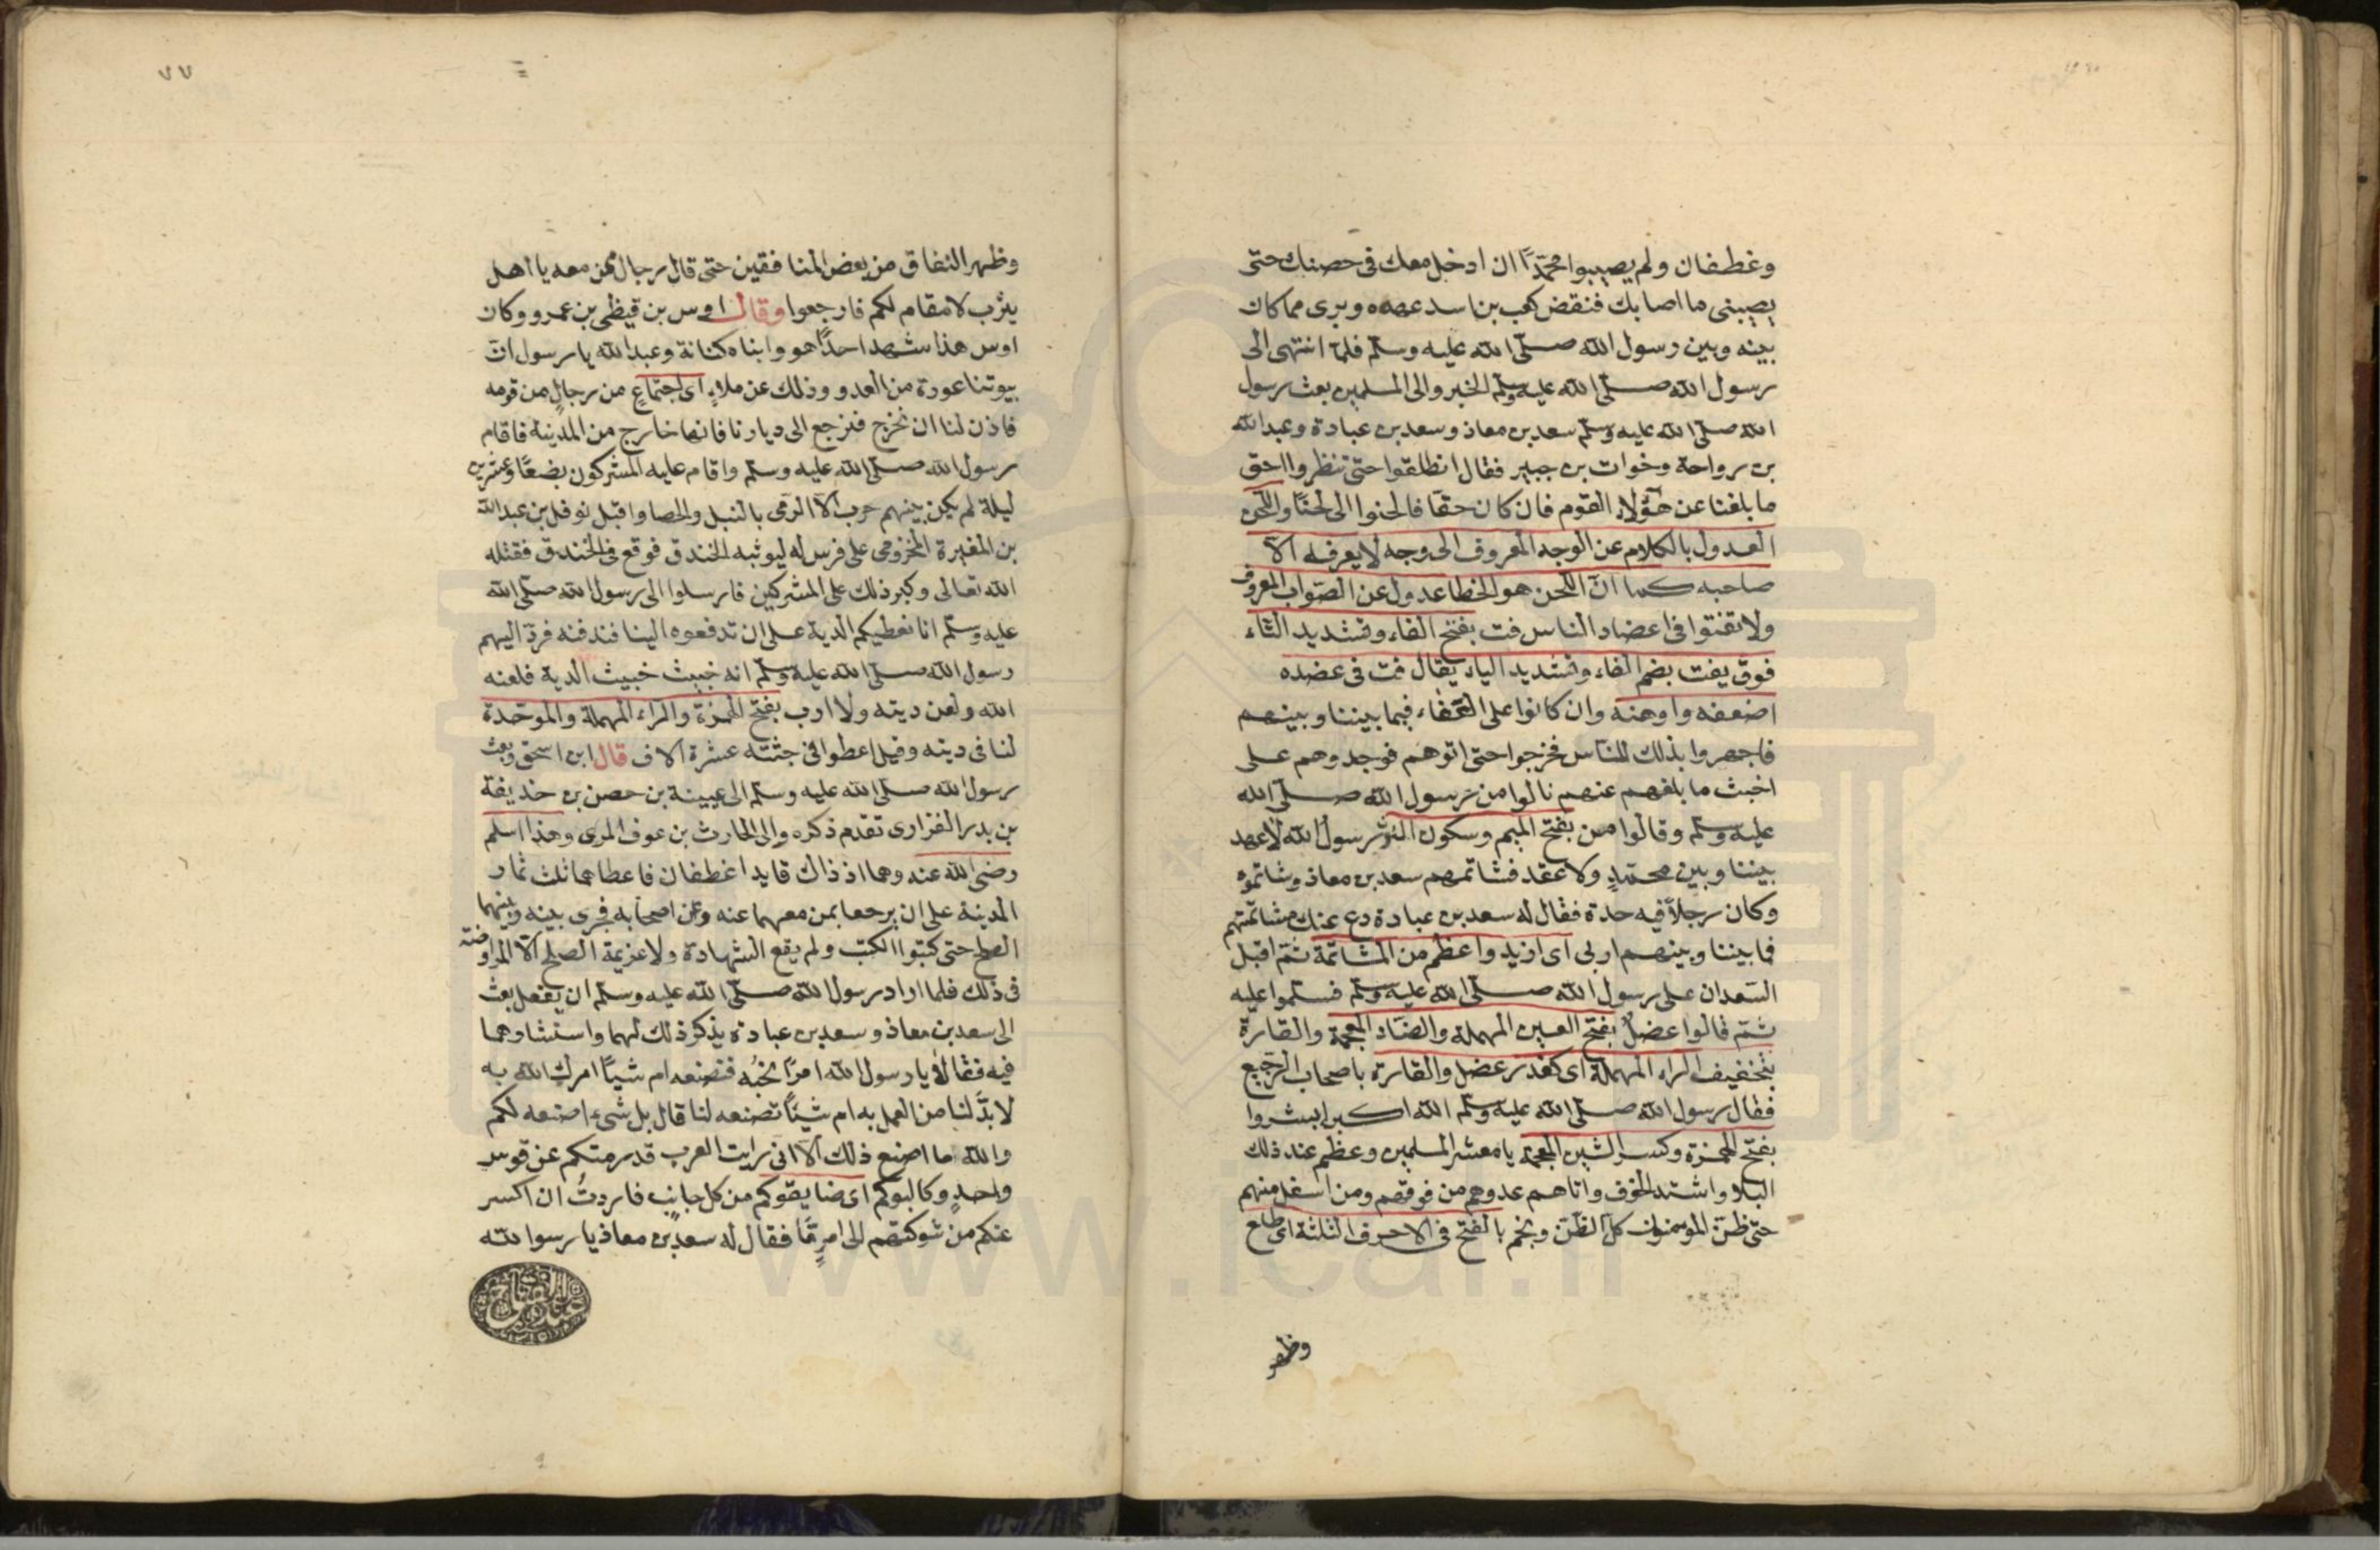 وغطفان ولم يصيبوا محمّدًا ان ادخل معك فى حصنك حتى
يصيبنى ما اصابك فنقض كعب بن اسد عهده وبرى مما كان
بينه وبين رسول الله صلّى الله عليه وسلّم فلمّا انتهى الى
رسول الله صلّى الله عليه وسلّم الخبر والى المسلمين بعث رسول
الله صلّى الله عليه وسلّم سعد بن معاذ وسعد بن عبادة وعبد الله
بن رواحة وخوات بن جبير فقال انطلقوا حتى تنظروا احق
ما بلغنا عن هؤلاء القوم فان كان حقّا فالحنوا الى لحنًا واللحن
العدول بالكلام عن الوجه المعروف الى وجه لا يعرفه الّا
صاحبه كما انّ اللحن هو الخطا عدول عن الصّواب المعروف
ولا تفتوا فى اعضاد الناس فت بفتح الفاء وتشديد التاء
فوق يفت بضم الفاء وتشديد الياء يقال فت فى عضده
اضعفه واوهنه وان كانوا على الوفاء فيما بيننا وبينهم
فاجهروا بذلك للنّاس فخرجوا حتى اتوهم فوجدوهم على
اخبث ما بلغهم عنهم نالوا من رسول الله صلّى الله
عليه وسلّم وقالوا من بفتح الميم وسكون النون رسول الله لا عهد
بيننا وبين محمّدٍ ولا عقد فشاتمهم سعد بن معاذ وشاتموه
وكان رجلاً فيه حدة فقال له سعد بن عبادة دع عنك مشاتمتهم
فما بيننا وبينهم اربى اى ازيد واعظم من المشاتمة ثمّ اقبل
السّعدان على رسول الله صلّى الله عليه وسلّم فسلّموا عليه
ثمّ قالوا عضل بفتح العين المهملة والضّاد المعجمة والقارة
بتخفيف الراء المهملة اى كغدر عضل والقارة باصحاب الرّجيع
فقال رسول الله صلّى الله عليه وسلّم الله اكبر ابشروا
بفتح الهمزة وكسر الشين المعجمة يا معشر المسلمين وعظم عند ذلك
البلا واشتد الخوف واتاهم عدوهم من فوقهم ومن اسفل منهم
حتى ظنّ المومنون كلّ الظّنّ ونجم بالفتح فى الاحرف الثلثة اى طلع
وظهر
٧٧
وظهر النفاق من بعض المنافقين حتى قال رجال ممن معه يا اهل
يثرب لا مقام لكم فارجعوا وقال اوس بن قيظى بن عمرو وكان
اوس هذا شهد احدًا هو وابناه كنانة وعبد الله يا رسول انّ
بيوتنا عورة من العدو وذلك عن ملاءٍ اى اجتماعٍ من رجالٍ من قومه
فاذن لنا ان نخرج فنرجع الى ديارنا فانها خارج من المدينة فاقام
رسول الله صلّى الله عليه وسلّم واقام عليه المشركون بضعًا وعشرين
ليلة لم يكن بينهم حرب الّا الرّمى بالنبل والحصا واقبل نوفل بن عبد الله
بن المغيرة المخزومى على فرس له ليوثبه الخندق فوقع فى الخندق فقتله
الله تعالى وكبر ذلك على المشركين فارسلوا الى رسول الله صلّى الله
عليه وسلّم انا نعطيكم الدية على ان تدفعوه الينا فندفنه فردّ اليهم
رسول الله صلّى الله عليه وسلّم انه خبيث خبيث الدية فلعنه
الله ولعن ديته ولا ارب بفتح الهمزة والراء المهملة والموحّدة
لنا فى ديته وقيل اعطوا فى جثته عشرة الاف قال ابن اسحق وبعث
رسول الله صلّى الله عليه وسلّم الى عيينة بن حصن بن حذيفة
بن بدر الفزارى تقدم ذكره والى الحارث بن عوف المرى وهذا اسلم
رضى الله عنه وهما اذ ذاك قايدا غطفان فاعطاهما ثلث ثمار
المدينة على ان يرجعا بمن معهما عنه وعن اصحابه فجرى بينه وبينهما
الصلح حتى كتبوا الكتب ولم يقع الشهادة ولا عزيمة الصلح الّا المراوضة
فى ذلك فلما اراد رسول الله صلّى الله عليه وسلّم ان يفعل بعث
الى سعد بن معاذ وسعد بن عبادة يذكر ذلك لهما واستشارهما
فيه فقالا يا رسول الله امرًا تحبّه فتصنعه ام شيئًا امرك الله به
لا بدّ لنا من العمل به ام شيئًا تصنعه لنا قال بل شىء اصنعه لكم
والله ما اصنع ذلك الّا انى رايت العرب قد رمتكم عن قوس
واحدٍ وكالبوكم اى ضايقوكم من كل جانبٍ فاردتُ ان اكسر
عنكم من شوكتهم الى امرٍ مّا فقال له سعد بن معاذ يا رسول الله
www.ical.ir